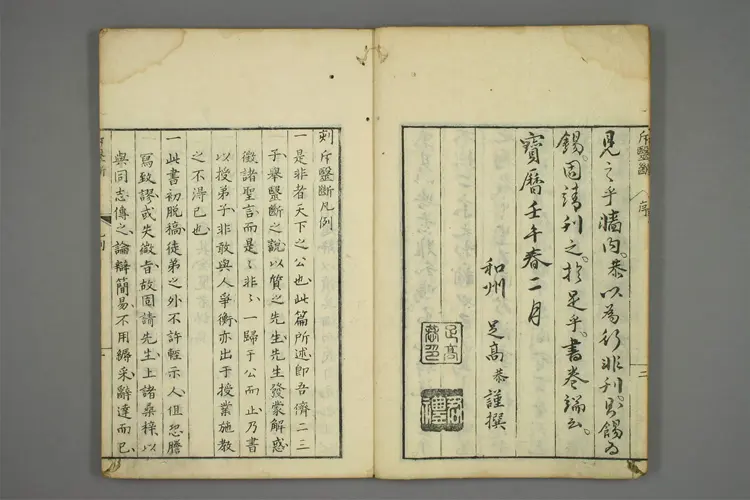 斥醫斷 序
見之乎墻內。恭以為行非刊則錫為
錫。固請刊之。於是乎書卷端云。
寶曆壬午春二月
和州 足高恭謹撰
足高恭印
刻斥醫斷凡例
一是非者天下之公也此篇所述即吾儕二三
子舉醫斷之說以質之先生先生發蒙解惑
徵諸聖言而是是非非一歸于公而止乃書
以授弟子非敢與人爭衡亦出于授業施教
之不得已也
一此書初脫稿徒弟之外不許輕示人但忽謄
寫致謬或失徵旨故固請先生上諸桑梓以
與同志傳之論辯簡易不用摭采辭達而已